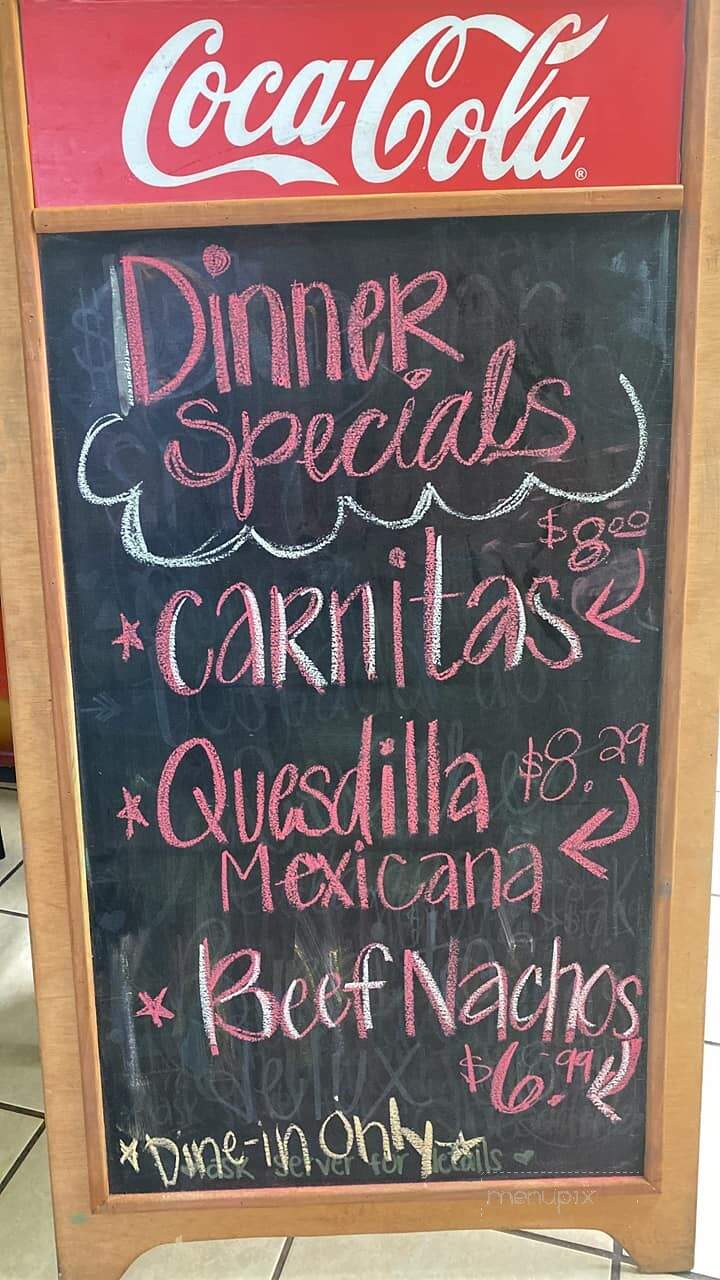 Coca-Cola®
Dinner
Specials
$8.00
Carnitas
Quesdilla $8.29
Mexicana
Beef Nachos
$6.99
Dine-in Only
ask server for details
menupix